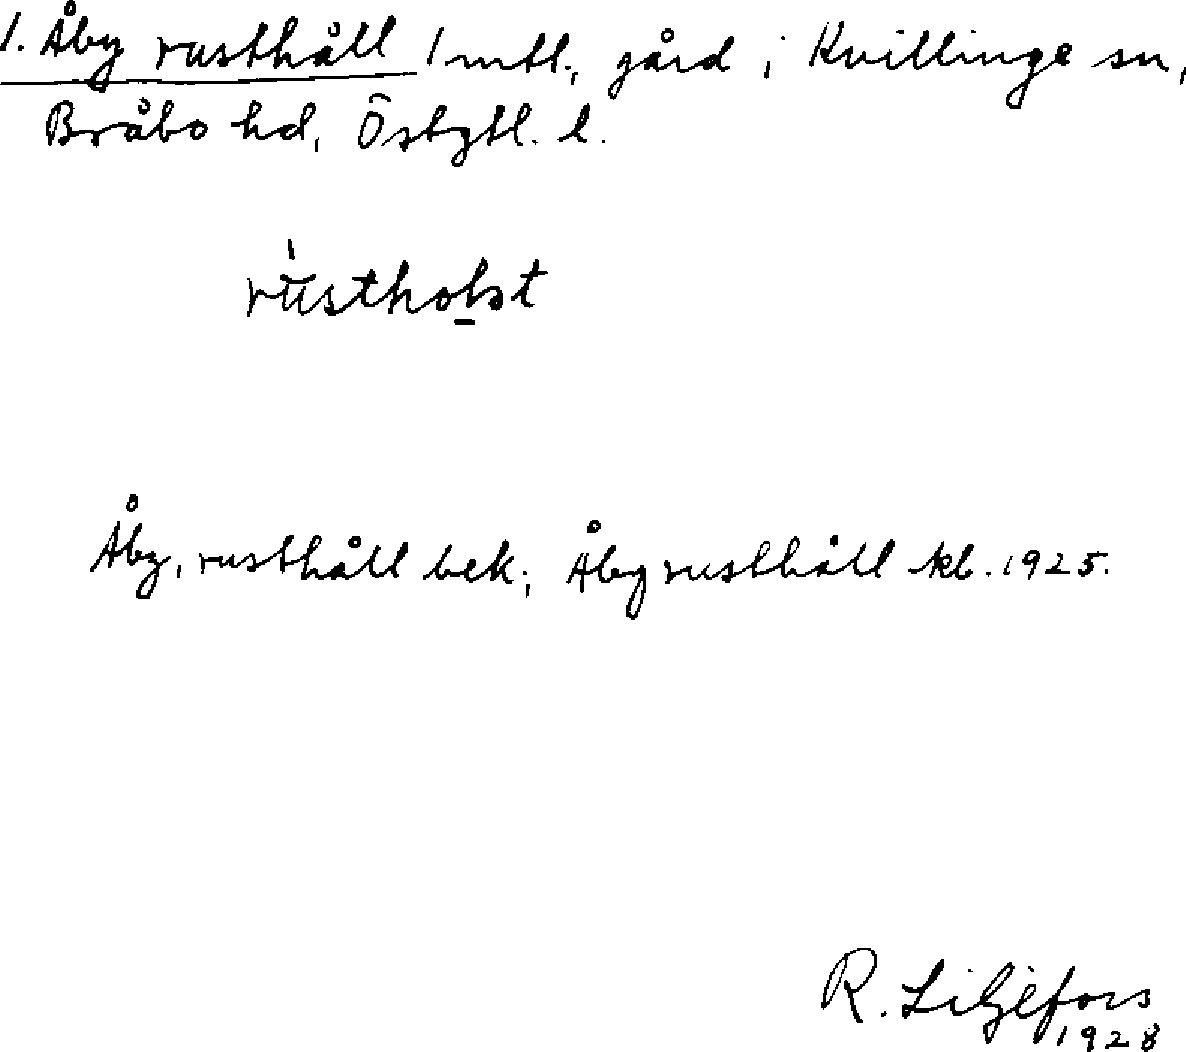 1. Åby rusthåll 1 mtl., gård i Kvillinge sn,
Bråbo hd, Östgtl. l.
Åby, rusthåll bek.; Åby rusthåll kb. 1925.
R. Liljefors
1928